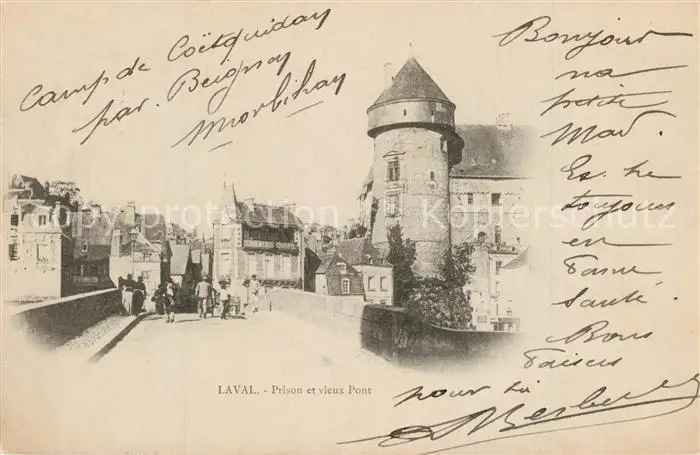 Camp de Coëtquidan
par Beignon
Morbihan
Bonjour
ma
petite
Mad.
Es. he
toujours
en
Parfaite
Santé.
Bons
baisers
pour toi
LAVAL. - Prison et vieux Pont
Kopierschutz